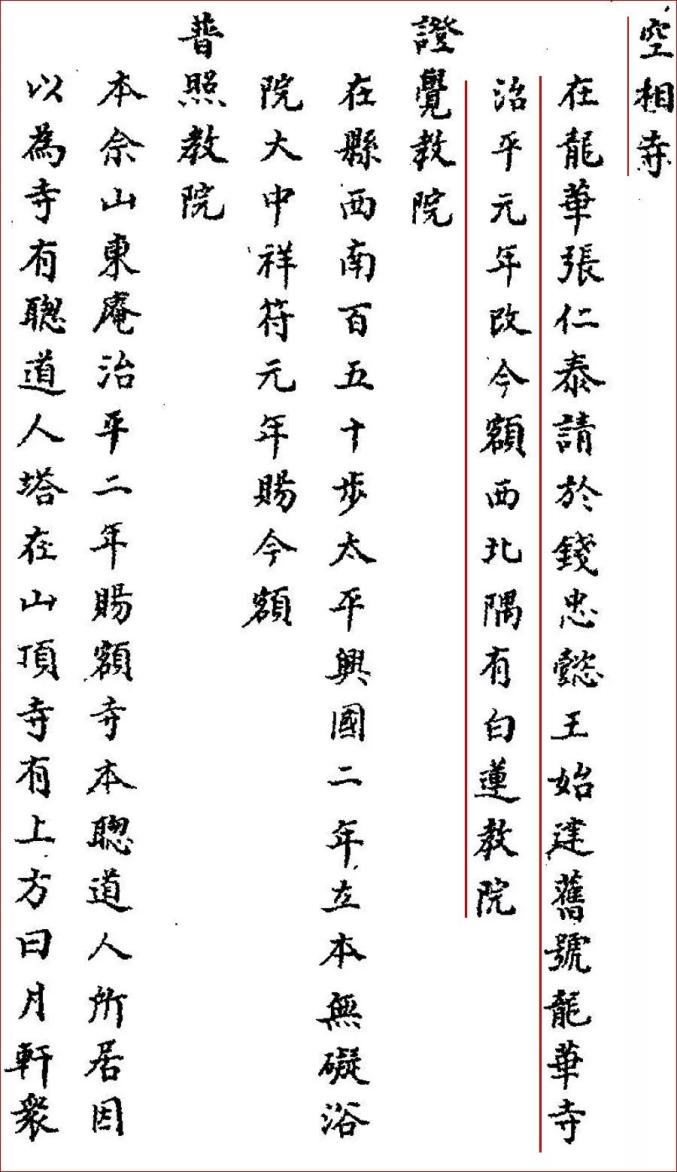 空相寺
在龍華張仁泰請於錢忠懿王始建舊號龍華寺
治平元年改今額西北隅有白蓮教院
證覺教院
在縣西南百五十步太平興國二年立本無礙浴
院大中祥符元年賜今額
普照教院
本佘山東庵治平二年賜額寺本聰道人所居因
以為寺有聰道人塔在山頂寺有上方曰月軒衆